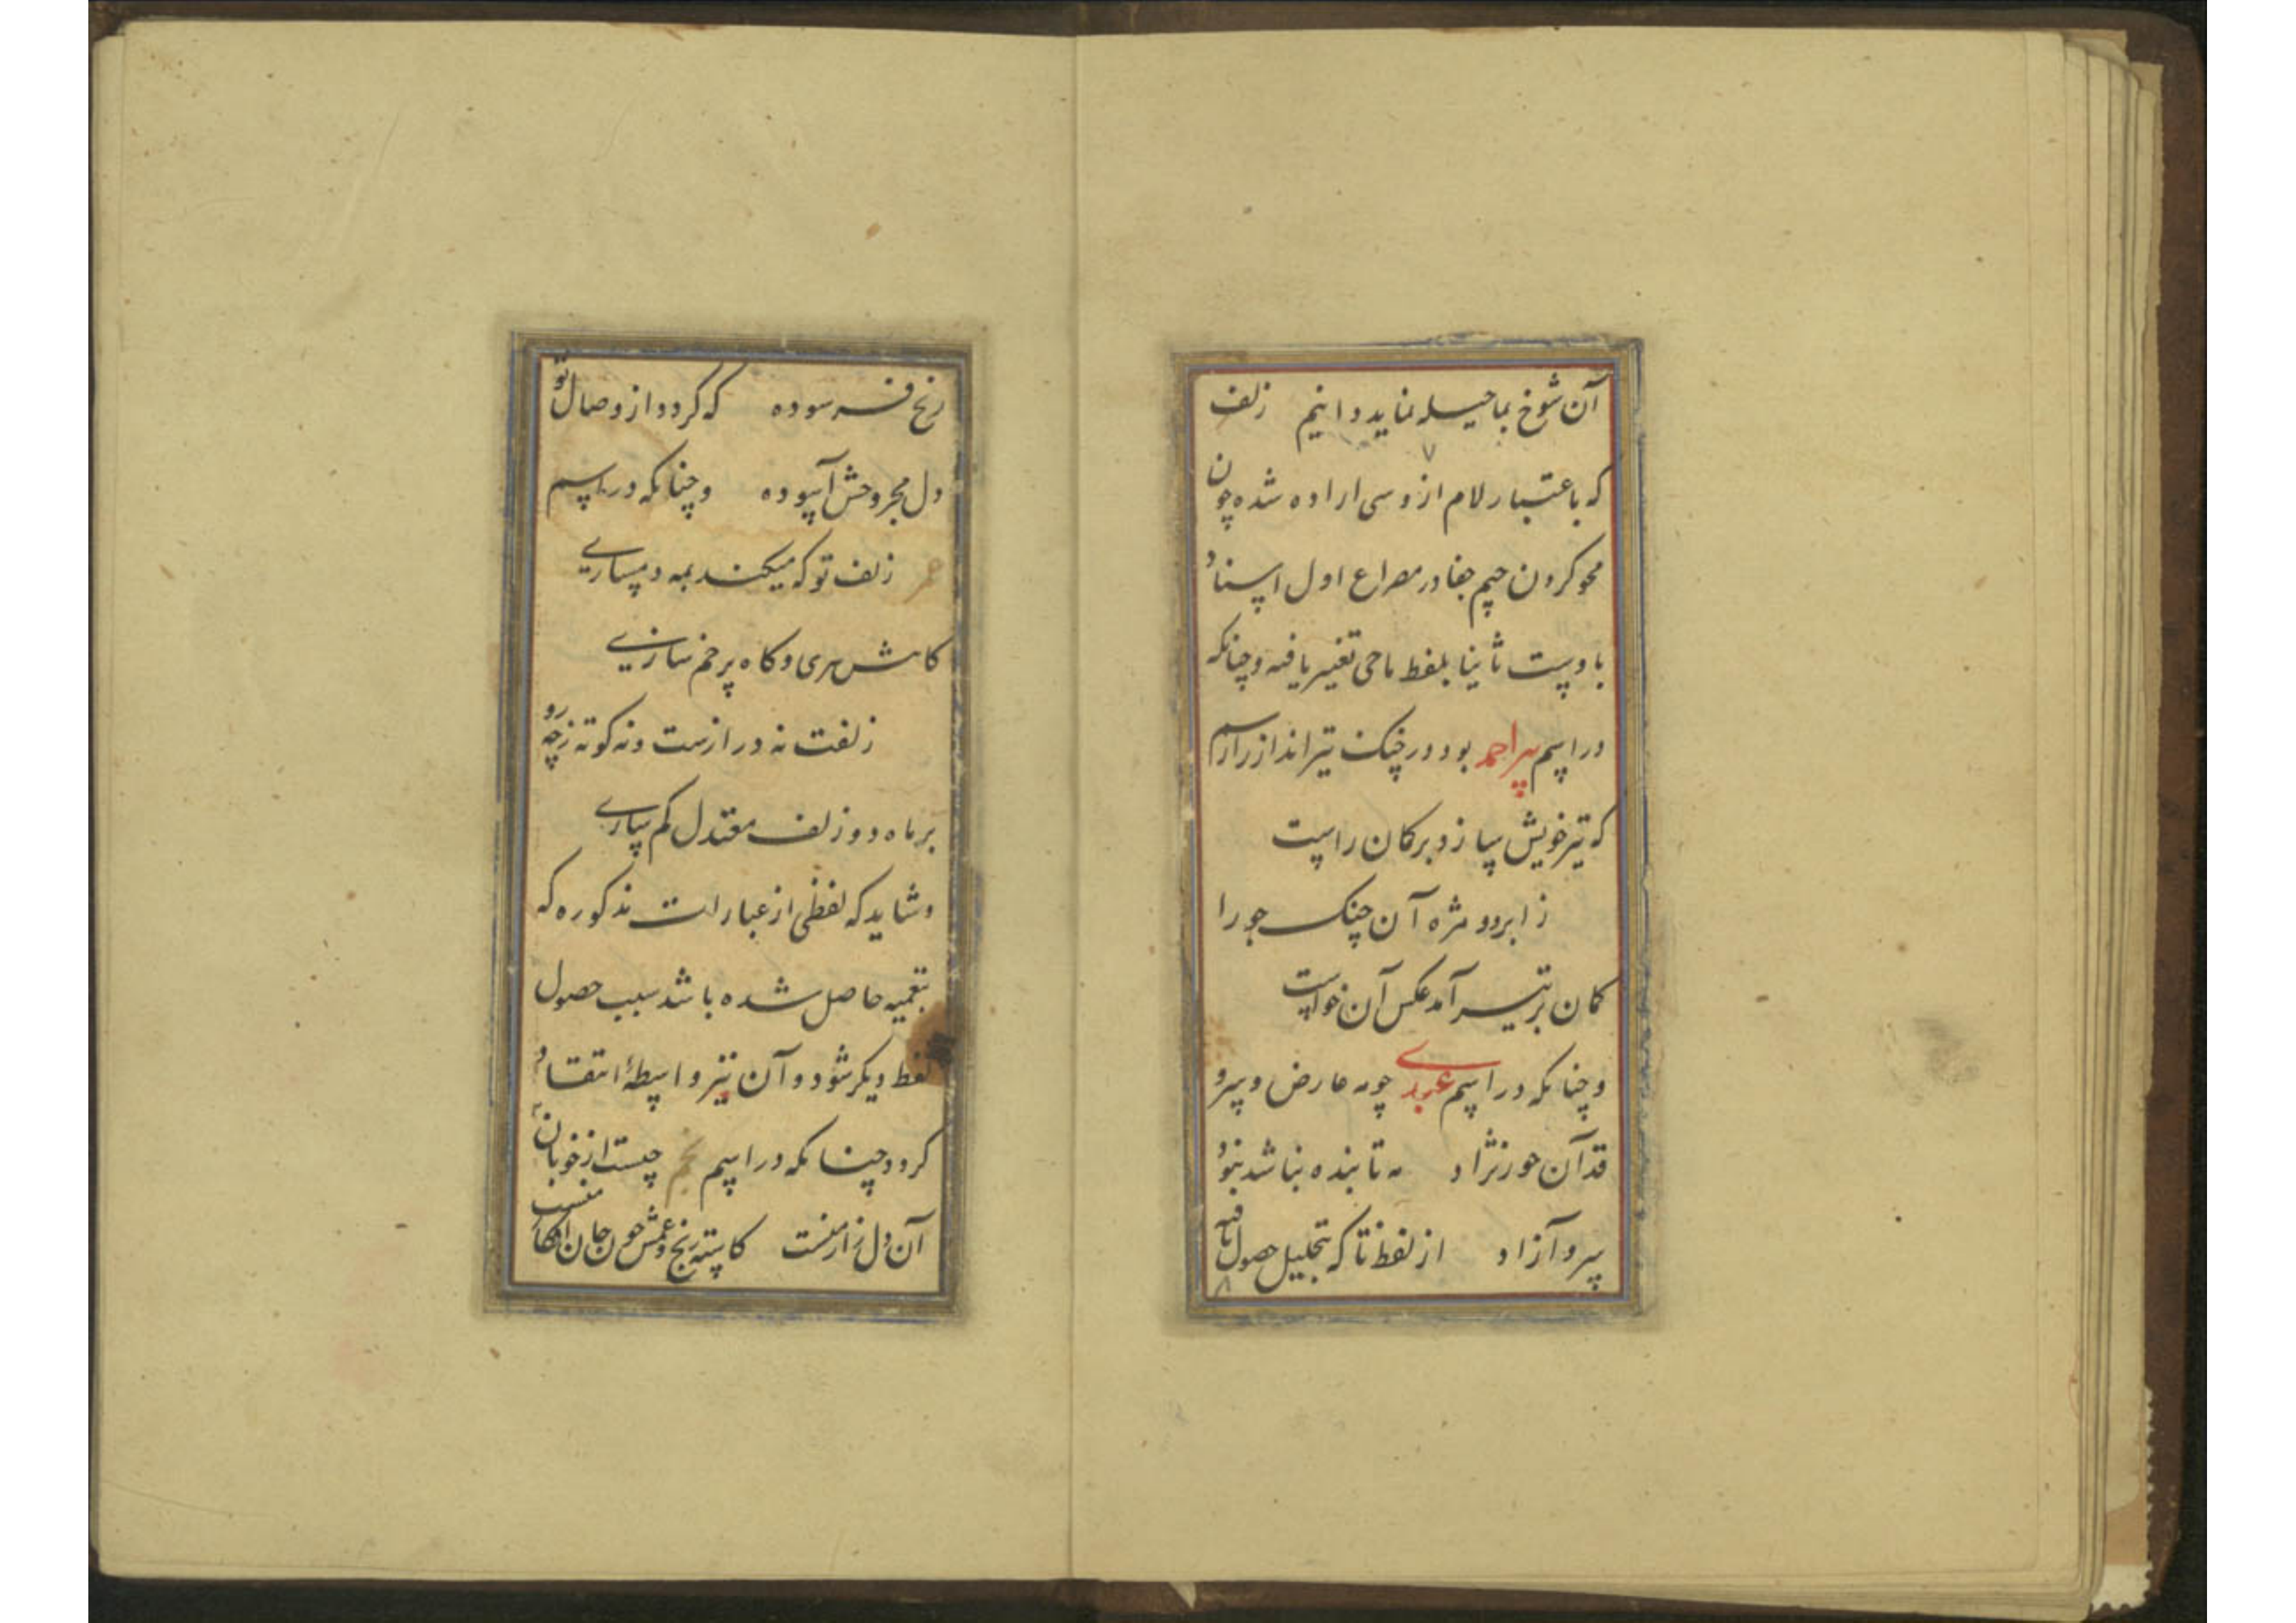 آن شوخ بما حیله نماید دانیم زلف
۷
که باعتبار لام از وسی اراده شده چون
محو کردن جیم جفا در مصراع اول اسناد
باوست ثانیا بلفظ ماحی تغییر یافته و چنانکه
در اسم پیر احمد بود در جنک تیرانداز را رسم
که تیر خویش سازد بر کمان راست
ز ابرو و مژه آن جنک جو را
کمان بر تیر آمد عکس آن خواست
و چنانکه در اسم عبدی چو مه عارض و سرو
قد آن حور نژاد مه تابنده نباشد نبود
سرو آزاد از لفظ تا که بتحلیل حصول یافته
۸
رنج فرسوده که کردد از وصال تو
دل مجروحش آسوده و چنانکه در اسم
عمر زلف تو که میکند بمه دمسازی
کاهش بری و کاه پر خم سازی
زلفت نه درازست و نه کوته ز چه رو
بر ماه دو زلف معتدل کم سازی
و شاید که لفظی از عبارات مذکوره که
بتعمیه حاصل شده باشد سبب حصول
لفظ دیکر شود و آن نیز واسطهٔ انتقاد
کردد چنانکه در اسم نجم چیست از خوبان
آن دل زار منست کاسته رنج و غمش چون جان افکار منست